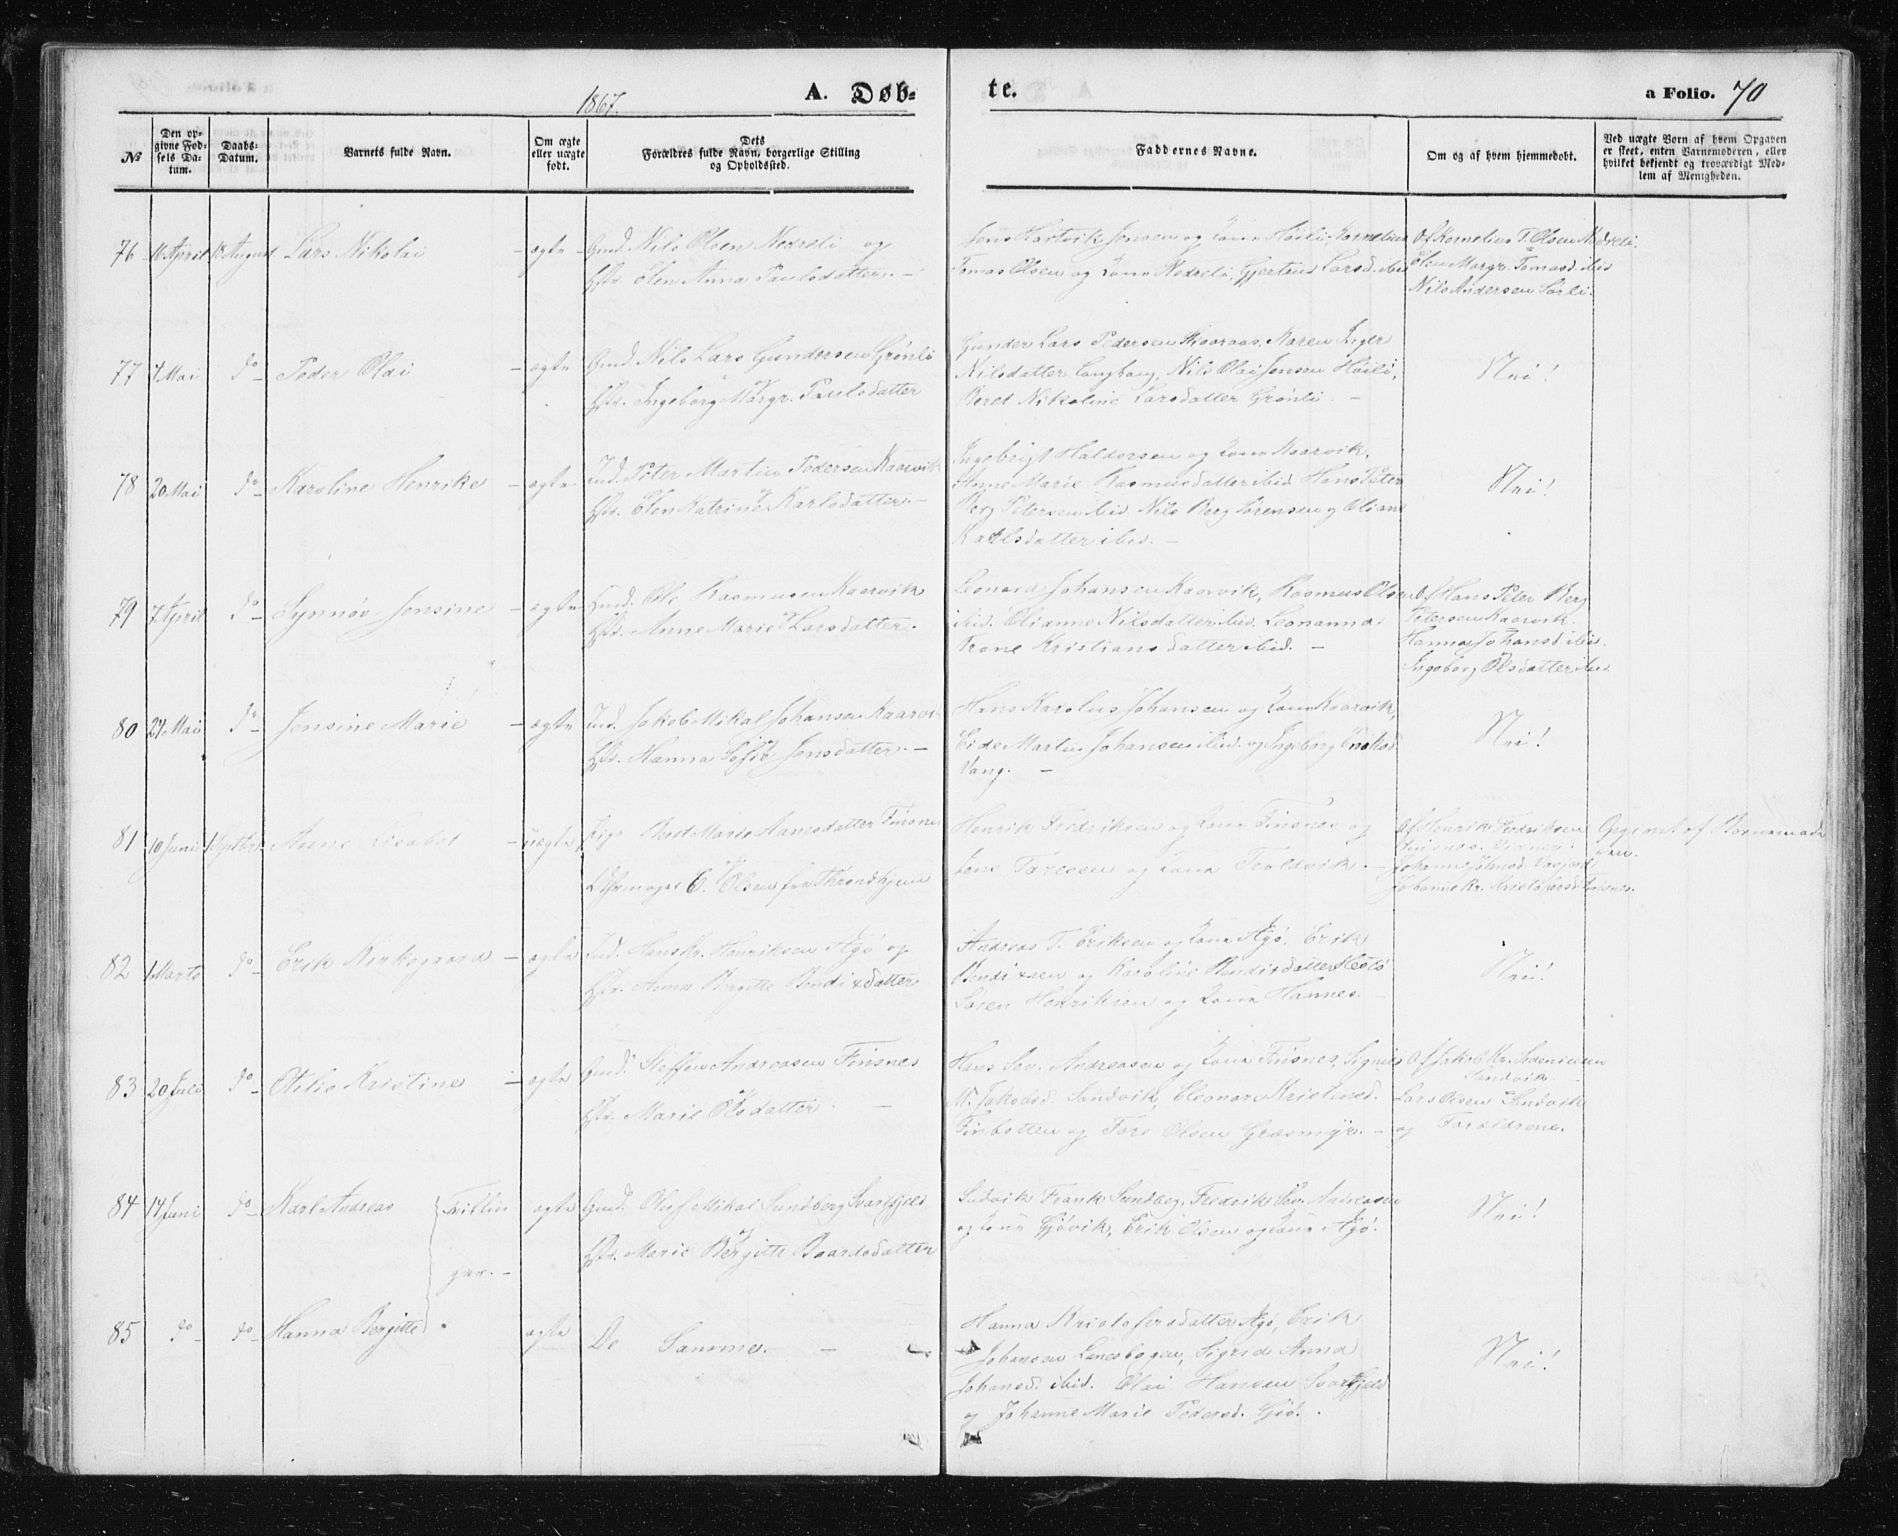 1867.
A. Døb-
te.
a Folio. 70
№
Den op-
givne Fød-
sels Da-
tum.
Daabs-
Datum.
Barnets fulde Navn.
Om ægte
eller uægte
født.
Dets
Forældres fulde Navn, borgerlige Stilling
og Opholdssted.
Faddernes Navne.
Om og af hvem hjemmedøbt.
Ved uægte Børn af hvem Opgaven
er skeet, enten Barnemoderen, eller
hvilket bekjendt og troværdigt Med-
lem af Menigheden.
76 16 April 18 August Lars Nikolai - ægte - Gmd. Nils Olsen Nedreli og
Hst. Elen Anna Paulsdatter. -
Jens Hartvik Jensen og Kone Höili, Kornelius
Tomas Olsen og Kone Nedreli, Gjertine Larsd. ibid
Af Kornelius T. Olsen Nedreli.
Elen Margr. Tomasd. ibid
Nils Andersen Sörli.
77 4 Mai do - Peder Olai - ægte Gmd. Nils Lars Gundersen Grönli
og
Hst. Ingeborg Margr. Paulsdatter
Gunder Lars Pedersen Kaaraas, Karen
Nilsdatter Langhaug, Nils Olai Jensen Höili,
Beret Nikoline Larsdatter Grönli. -
Nei!
78 20 Mai do - Karoline Henrike - ægte Ind. Peter Martin Pedersen Kaarvik
og
Hst. Elen Katrine Karlsdatter. -
Ingebrigt Haldorsen og Kone Kaarvik,
Anne Marie Rasmusdatter ibid. Hans Peter
Berg Petersen ibid. Nils Berg Sörensen og Oliane
Karlsdatter ibid. -
Nei!
79 7 April do - Synnöv Jensine - ægte Ole Rasmusen Kaarvik
og
Hst. Anne Marie Larsdatter.
Leonard Johansen Kaarvik, Rasmus Olsen
ibid. Olianne Nilsdatter ibid. Leonanna
Trane Kristiansdatter ibid. -
Af Hans Peter Berg
Petersen Kaarvik.
Hanna Johansd. ibid.
Ingeborg Olsdatter ibid
80 24 Mai do - Jensine Marie - ægte Ind. Jakob Mikal Johansen Kaarvik
og
Hst. Hanna Sofie Jensdatter. -
Hans Karolus Johansen og Kone Kaarvik,
Eide Martin Johansen ibid. og Ingeborg
Vang. -
Nei!
81 10 Juni 1 Septbr. Anne Lisabet - uægte Pige Beret Marie Aanesdatter Finsnes
og
C. Olsen fra Throndhjem
Henrik Fredriksen og Kone Finsnes og
Jens Taresen og Kone Troldvik. -
Af Henrik Fredriksen
Finsnes.
Johanne Kr. Kristofersd. Finsnes.
Opgivet af Barnemode-
ren.
82 1 Marts do - Erik Kirkegaard - ægte Ind. Hans Kr. Henriksen Agö og
Hst. Anna Bergitte Bendixdatter
Andreas T. Eriksen og Kone Agö, Erik
Bendixsen og Karoline Bendixdatter
Sören Henriksen og Kone Hannes.
Nei!
83 20 Juli do - Otilie Kristine - ægte Gmd. Steffen Andreasen Finsnes
og
Hst. Marie Olsdatter. -
Hans Sev. Andreasen og Kone Finsnes, Signe
M. Jakobsd. Sandvik, Eleonore Kristensd.
Finbotten og Tore Olsen Græsmyr. -
Af Jakob Kr. Sandvik. -
Lars Olsen Sandvik
og Forældrene.
84 14 Juni do - Karl Andreas Tvillin- ægte Gmd. Oluf Mikal Sundberg Svartfjeld
og
ger. - Hst. Marie Bergitte Baardsdatter
Ludvik Frank Sundbeg, Fredrik Sev. Andreasen
og Kone Gjövik, Erik Olsen og Kone Agö.
Nei!
85 do - do - Hanna Bergitte ægte De Samme. -
Hanna Kristofersdatter Agö, Erik
Johansen Lanesbogen, Sigrid Anna
Johansd. ibid. Olai Hansen Svartfjeld
og Johanne Marie Pedersd. Gjö.
Nei!